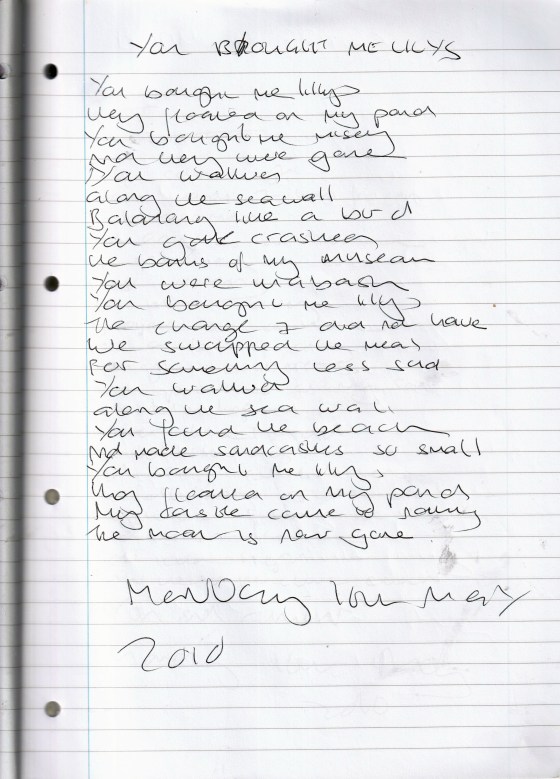 You BROUGHT ME LILYS
You bought me lilys
they floated on my pond
You bought me misery
And they were gone
You walked
along the seawall
Balancing like a bird
You gate crashed
the banks of my museum
You were
You bought me lilys
the change I did not have
We swapped the
For something less sad
You walked
along the sea wall
You found the beach
And made sandcastles so small
You bought me lilys
they floated on my pond
My castle came to nothing
the moon is now gone
10th May
2010